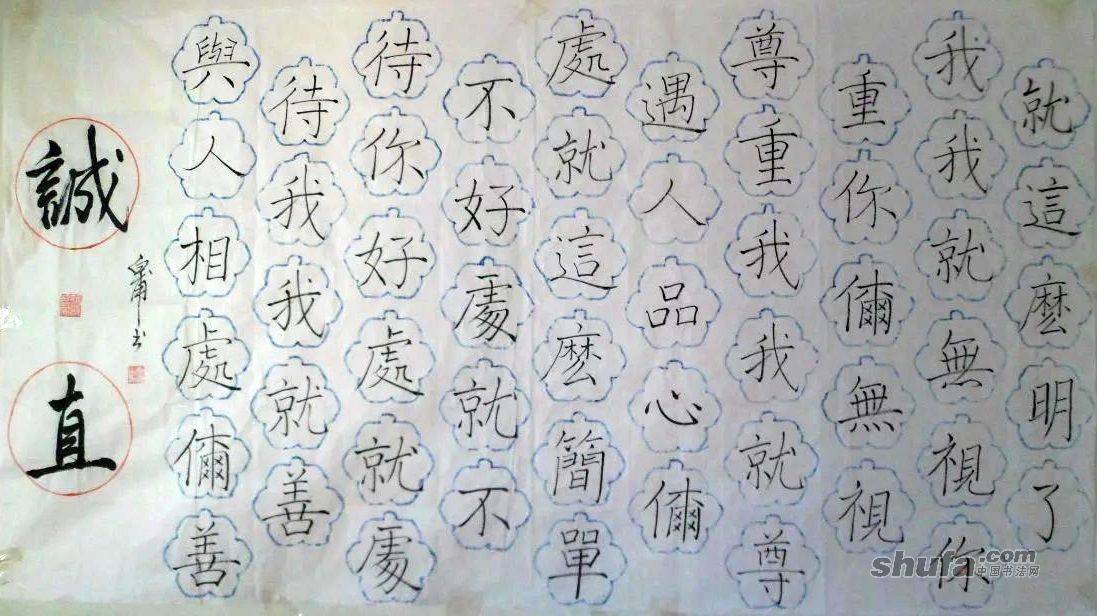 誠直
與人相處儞善
待我我就善
待你好處就處
不好處就不
處就這麽簡單
遇人品心儞
尊重我我就尊
重你儞無視
我我就無視你
就這麽明了
shufa.com
中国书法网